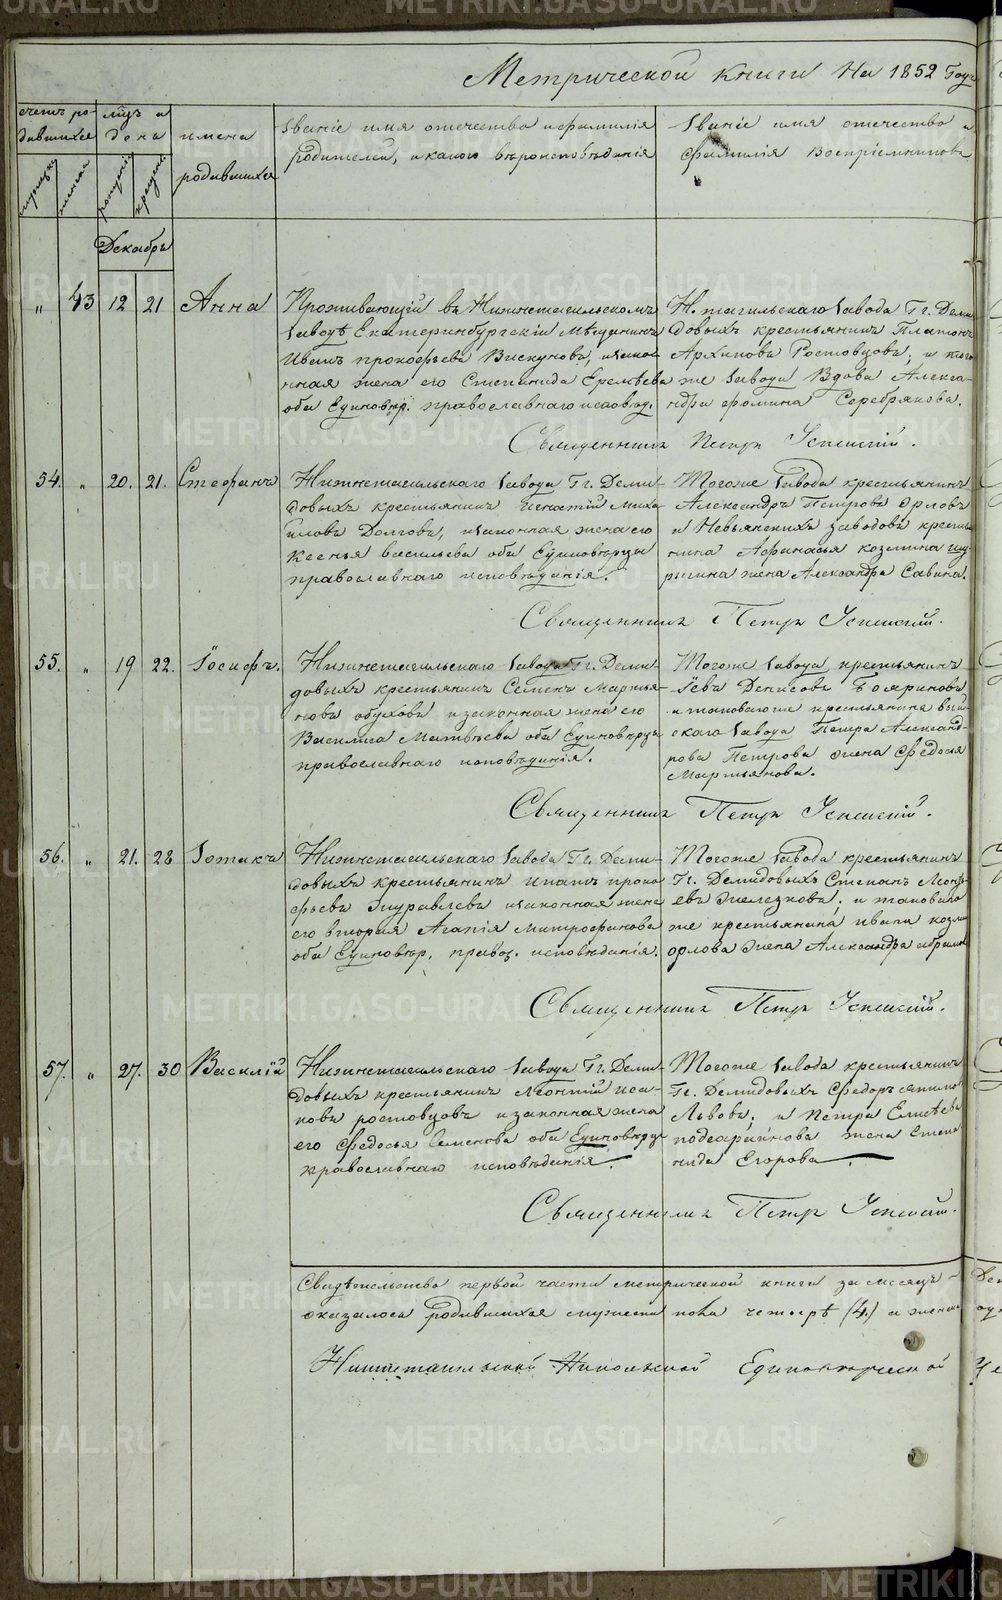 Метрической книги на 1852 Годъ
счетъ ро-
дившихся
мужеска
женска
мцъ и
день
рожденія
крещенія
имена
родившихся
званіе имя отечество и фамилія
родителей, и какого вѣроисповѣданія
званіе имя отечество и
фамилія Воспріемниковъ
Декабрь
" 43 12 21 Анна
Проживающій въ Нижнетагильскомъ
заводѣ Екатеринбургскій Мѣщанинъ
Иванъ прокофьевъ Вискуновъ, и закон-
ная жена его Степанида Еремѣева
оба Единовѣр. православнаго исповѣд.
Н. тагильскаго завода Гг. Деми
довыхъ крестьянинъ Платонъ
Архиповъ Ростовцовъ, и того
же завода Вдова Алекса-
ндра фомина Серебрякова.
Священникъ Петръ Успенскій.
54. " 20. 21. Стефанъ
Нижнетагильскаго завода Гг. Деми-
довыхъ крестьянинъ Игнатій Миха
иловъ Долговъ, и законная жена его
Ксенья васильева оба Единовѣрцы
православнаго исповѣданія.
Тогоже завода крестьянинъ
Александръ Петровъ Орловъ
и Невьянскихъ заводовъ кресть
нина Афанасья козмина
жена Александра Савина.
Священникъ Петръ Успенскій.
55. " 19 22. Іосифъ.
Нижнетагильскаго завода Гг. Деми-
довыхъ крестьянинъ Семенъ Мартья-
новъ обуховъ и законная жена его
Василиса Матвѣева оба Единовѣрцы
православнаго исповѣданія.
Тогоже завода крестьянинъ
Іевъ Денисовъ Бояриновъ
и таковагоже крестьянина выи
скаго завода Петра Александ-
рова Петрова жена Федосья
Мартьянова.
Священникъ Петръ Успенскій.
56. " 21. 28 Потапъ
Нижнетагильскаго завода Гг. Деми-
довыхъ крестьянинъ Ипатъ проко
фьевъ Журавлевъ и законная жена
его вторая Агапія Митрофанова
оба Единовѣр. правос. исповѣданія.
Тогоже завода крестьянинъ
Гг. Демидовыхъ Степанъ Леонть
евъ Железковъ, и таковаго
же крестьянина ивана козми
орлова жена Александра абрамов
Священникъ Петръ Успенскій.
57. " 27. 30 Василій
Нижнетагильскаго завода Гг. Деми-
довыхъ крестьянинъ Леонтій иса-
ковъ ростовцовъ и законная жена
его Федосья Семенова оба Единовѣрцы
православнаго исповѣданія.
Тогоже завода крестьянинъ
Гг. Демидовыхъ Федоръ
Львовъ, и Петра Елисѣева
жена Степа
нида Егорова.
Священникъ Петръ Успенскій.
Свидѣтельство первой части метрической книги за мѣсяцъ
оказалось родившихся мужеска пола четыре (4) и женска
Нижнетагильской Николаевской Единовѣрческой